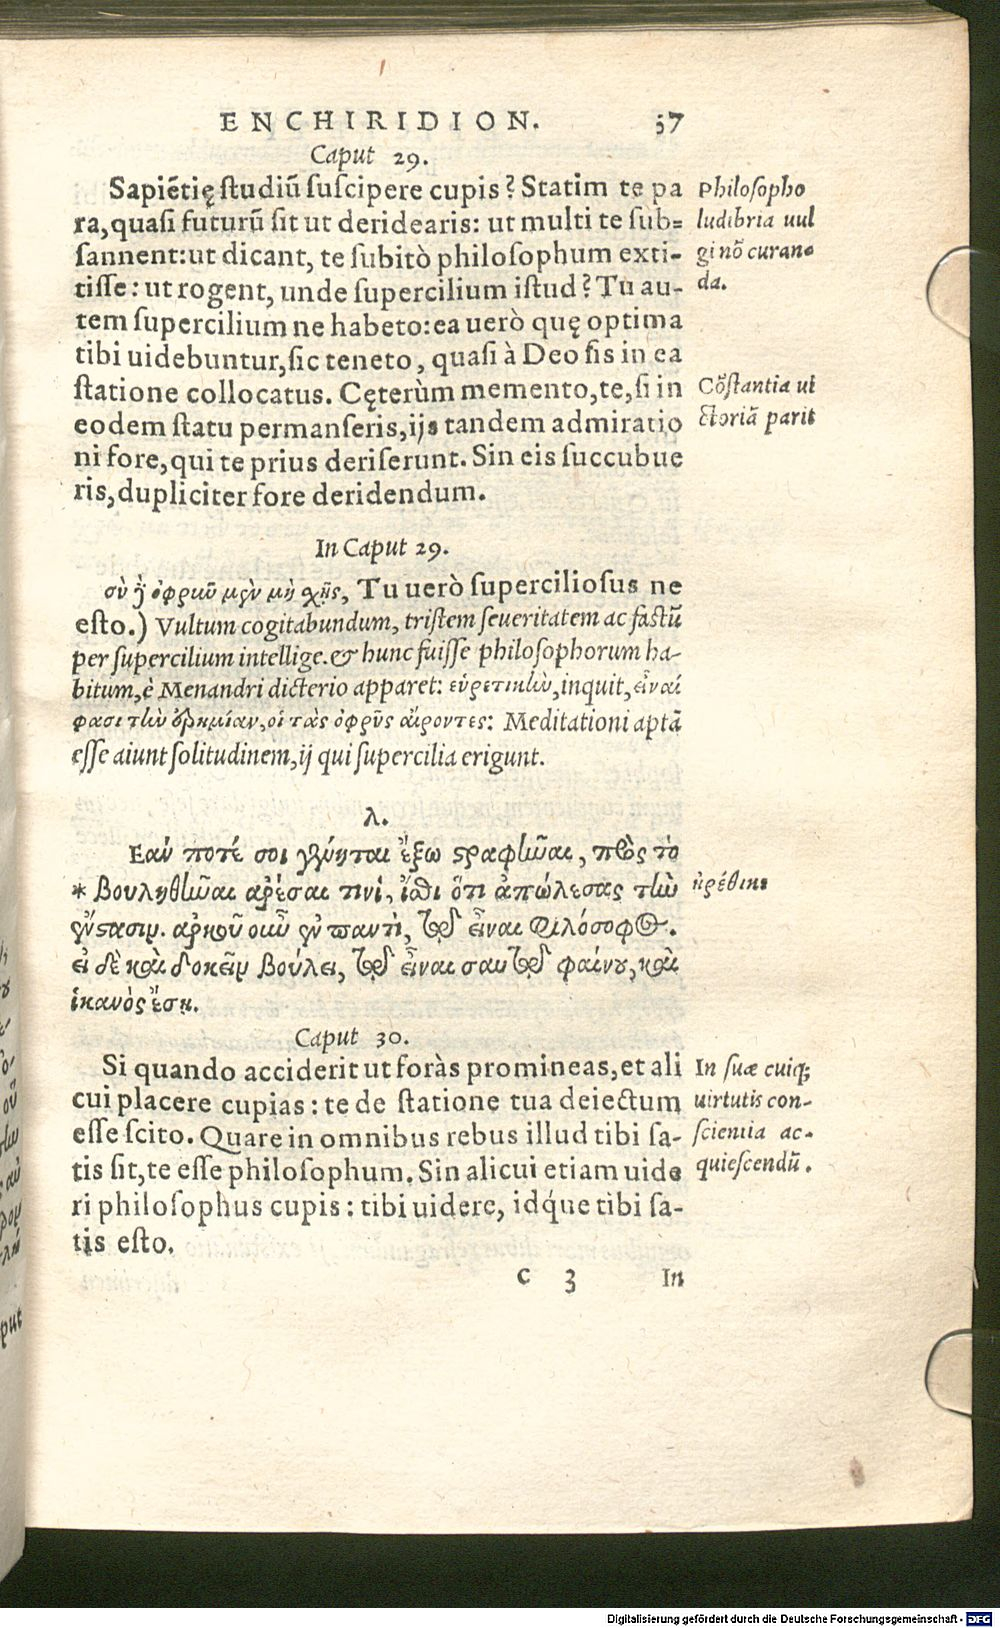 ENCHIRIDION. 37
Caput 29.
Sapiẽtię studiũ suscipere cupis? Statim te pa
ra, quasi futurũ sit ut deridearis: ut multi te sub=
sannent: ut dicant, te subitò philosophum exti-
tisse: ut rogent, unde supercilium istud? Tu au-
tem supercilium ne habeto: ea uerò quę optima
tibi uidebuntur, sic teneto, quasi à Deo sis in ea
statione collocatus. Cęterùm memento, te, si in
eodem statu permanseris, ijs tandem admiratio
ni fore, qui te prius deriserunt. Sin eis succubue
ris, dupliciter fore deridendum.
Philosopho
ludibria uul
gi nõ curan=
da.
Cõstantia ui
ctoriã parit
In Caput 29.
σὺ ἢ ὀφρκῦ μὲν μὴ χῇς, Tu uerò superciliosus ne
esto.) Vultum cogitabundum, tristem seueritatem ac fastũ
per supercilium intellige. & hunc fuisse philosophorum ha-
bitum, è Menandri dicterio apparet: εὑρετικὴν, inquit, εἶναί
φασι τὴν ἐρημίαν, οἱ τὰς ὀφρῦς αἴροντες: Meditationi aptã
esse aiunt solitudinem, ij qui supercilia erigunt.
λ.
Εαν ποτέ σοι γένηται ἔξω στραφῆναι, πρὸς τὸ
* βουληθῆναι ἀρέσαι τινί, ἴσθι ὅτι ἀπώλεσας τὴν
ἔνστασιν. ἀρκοῦ οὖν ἐν παντὶ, τῷ εἶναι φιλόσοφος.
εἰ δὲ καὶ δοκεῖν βούλει, τῷ εἶναι σαυτῷ φαίνου, καὶ
ἱκανὸς ἔσῃ.
Caput 30.
Si quando acciderit ut foràs promineas, et ali
cui placere cupias: te de statione tua deiectum
esse scito. Quare in omnibus rebus illud tibi sa-
tis sit, te esse philosophum. Sin alicui etiam uide
ri philosophus cupis: tibi uidere, idq́ue tibi sa-
tis esto.
In suæ cuiq;
uirtutis con-
scientia ac-
quiescendũ.
C 3 In
Digitalisierung gefördert durch die Deutsche Forschungsgemeinschaft - DFG